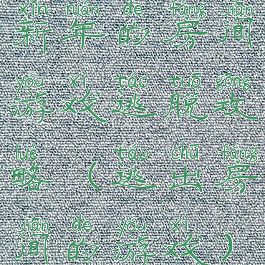 xīn nián de fáng jiān
新年的房间
yóu xì táo tuō gōng
游戏逃脱攻
lüè táo chū fáng
略（逃出房
jiān de yóu xì
间的游戏）